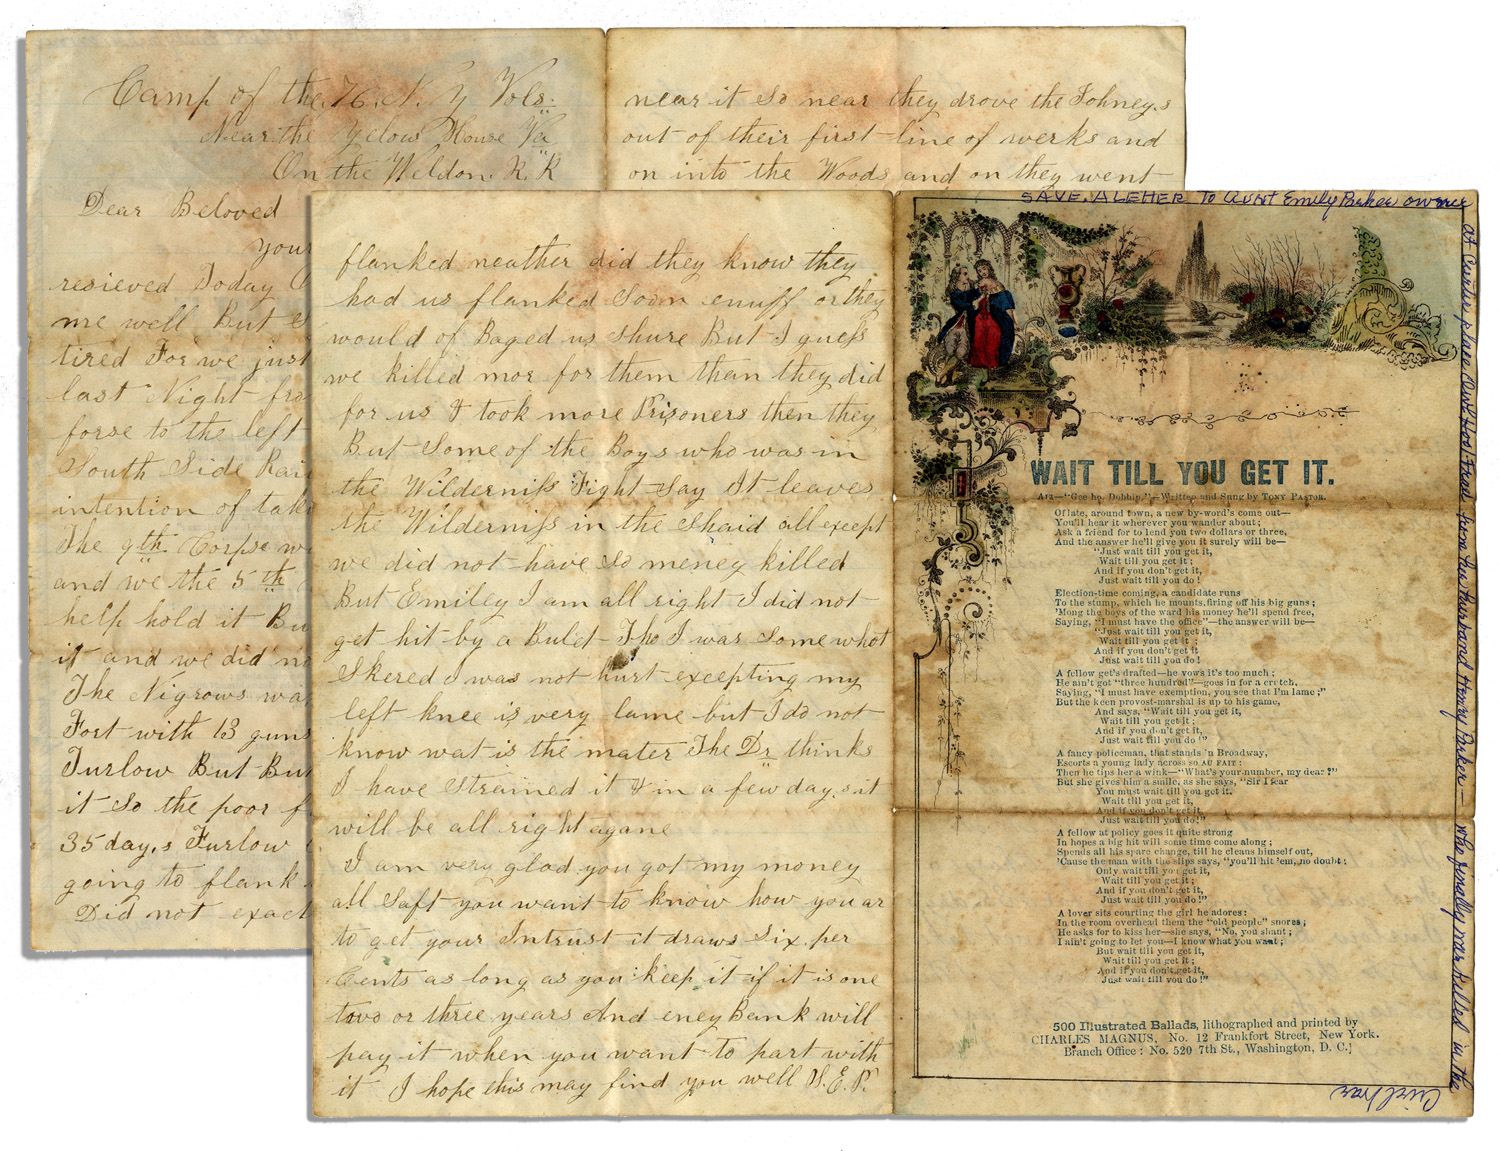 Camp of the 76. N. Y Vols.
Near the Yelow House Va
On the Weldon. R. R
Dear Beloved
your
resieved Today
me well But
tired For we just
last Night fro
forse to the left
South Side Rai
intention of tak
The 9th Corpse w
and we the 5th
help hold it Bu
it and we did no
The Nigrows wa
Fort with 13 guns
Furlow But But
it So the poor f
35 day,s Furlow
going to flank
Did not exact
near it So near they drove the Johney,s
out of their first line of werks and
on into the Woods and on they went
flanked neather did they know they
had us flanked Soon enuff or they
would of Baged us shure But I guess
we killed mor for them than they did
for us & took more Prisoners then they
But Some of the Boys who was in
the Wilderniss Fight Say It leaves
the Wilderniss in the Shaid all except
we did not have So meney killed
But Emiley I am all right I did not
get hit by a Buld Tho I was Somewhat
Skered I was not hurt excepting my
left knee is very lame but I do not
know wat is the mater The Dr thinks
I have Strained it & in a few day,s it
will be all right agane
I am very glad you got my money
all Saft you want to know how you ar
to get your Intrust it draws Six per
Cents as long as you keep it if it is one
towo or three years And eney Bank will
pay it when you want to part with
it I hope this may find you well S. E. P.
SAVE. A LETTER TO AUNT Emily Parker owner
at Curtis place Owl Hool From her husband Henry Parker — who finally was killed in the
Civil war
WAIT TILL YOU GET IT.
AIR—"Gee ho, Dobbin."—Written and Sung by TONY PASTOR.
Of late, around town, a new by-word's come out—
You'll hear it wherever you wander about;
Ask a friend for to lend you two dollars or three,
And the answer he'll give you it surely will be—
"Just wait till you get it,
Wait till you get it;
And if you don't get it,
Just wait till you do!
Election-time coming, a candidate runs
To the stump, which he mounts, firing off his big guns;
'Mong the boys of the ward his money he'll spend free,
Saying, "I must have the office"—the answer will be—
"Just wait till you get it,
Wait till you get it;
And if you don't get it
Just wait till you do!
A fellow get's drafted—he vows it's too much;
He ain't got "three hundred"—goes in for a crutch,
Saying, "I must have exemption, you see that I'm lame;"
But the keen provost-marshal is up to his game,
And says, "Wait till you get it,
Wait till you get it;
And if you don't get it,
Just wait till you do!"
A fancy policeman, that stands 'n Broadway,
Escorts a young lady across so AU FAIT:
Then he tips her a wink—"What's your number, my dear?"
But she gives him a smile, as she says, "Sir I fear
You must wait till you get it.
Wait till you get it,
And if you don't get it,
Just wait till you do!"
A fellow at policy goes it quite strong
In hopes a big hit will some time come along;
Spends all his spare change, till he cleans himself out,
'Cause the man with the slips says, "you'll hit 'em, no doubt;
Only wait till you get it,
Wait till you get it;
And if you don't get it,
Just wait till you do!"
A lover sits courting the girl he adores:
In the room overhead them the "old people" snores;
He asks for to kiss her—she says, "No, you shant;
I ain't going to let you—I know what you want;
But wait till you get it,
Wait till you get it;
And if you don't get it,
Just wait till you do!"
500 Illustrated Ballads, lithographed and printed by
CHARLES MAGNUS, No. 12 Frankfort Street, New York.
Branch Office: No. 520 7th St., Washington, D. C.}